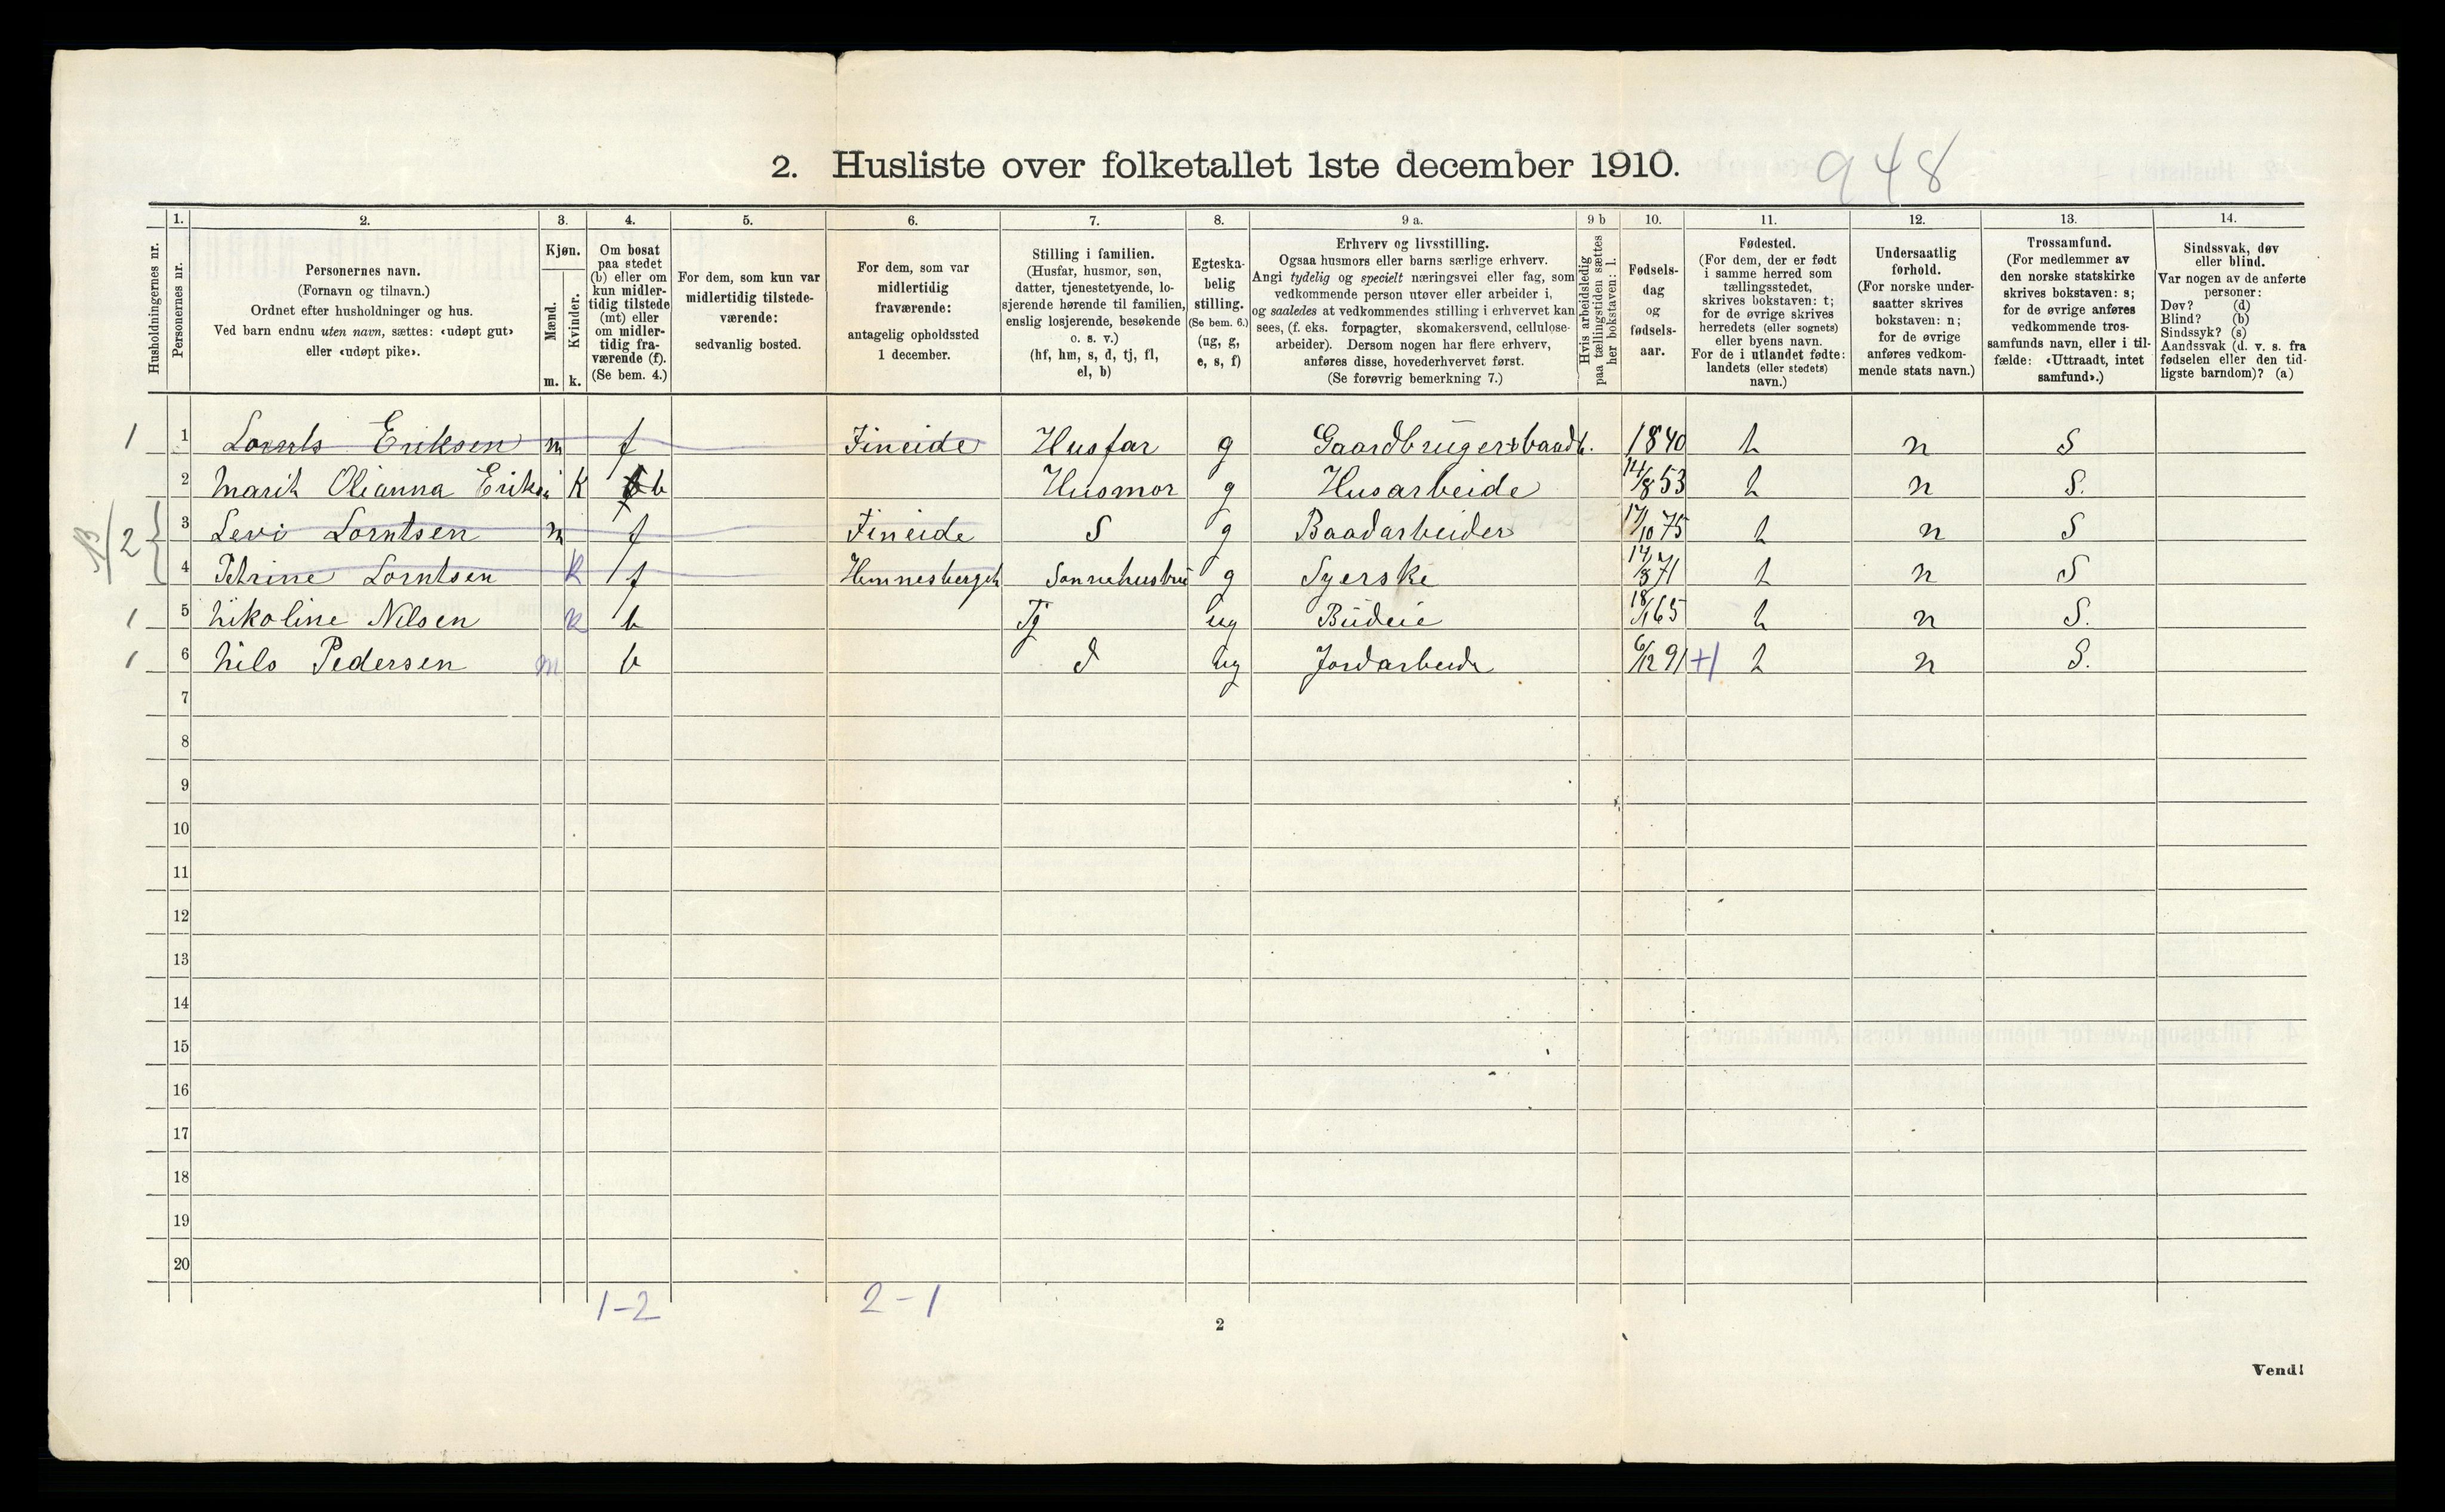 2. Husliste over folketallet 1ste december 1910. 948
Husholdningernes nr.
1.
Personernes nr.
2.
Personernes navn.
(Fornavn og tilnavn.)
Ordnet efter husholdninger og hus.
Ved barn endnu uten navn, sættes: «udøpt gut»
eller «udøpt pike».
3.
Kjøn.
Mænd.
Kvinder.
m. k.
4.
Om bosat
paa stedet
(b) eller om
kun midler-
tidig tilstede
(mt) eller
om midler-
tidig fra-
værende (f).
(Se bem. 4.)
5.
For dem, som kun var
midlertidig tilstede-
værende:
sedvanlig bosted.
6.
For dem, som var
midlertidig
fraværende:
antagelig opholdssted
1 december.
7.
Stilling i familien.
(Husfar, husmor, søn,
datter, tjenestetyende, lo-
sjerende hørende til familien,
enslig losjerende, besøkende
o. s. v.)
(hf, hm, s, d, tj, fl,
el, b)
8.
Egteska-
belig
stilling.
(Se bem. 6.)
(ug, g,
e, s, f)
9 a.
Erhverv og livsstilling.
Ogsaa husmors eller barns særlige erhverv.
Angi tydelig og specielt næringsvei eller fag, som
vedkommende person utøver eller arbeider i,
og saaledes at vedkommendes stilling i erhvervet kan
sees, (f. eks. forpagter, skomakersvend, cellulose-
arbeider). Dersom nogen har flere erhverv,
anføres disse, hovederhvervet først.
(Se forøvrig bemerkning 7.)
9 b
Hvis arbeidsledig
paa tællingstiden sættes
her bokstaven: l.
10.
Fødsels-
dag
og
fødsels-
aar.
11.
Fødested.
(For dem, der er født
i samme herred som
tællingsstedet,
skrives bokstaven: t;
for de øvrige skrives
herredets (eller sognets)
eller byens navn.
For de i utlandet fødte:
landets (eller stedets)
navn.)
12.
Undersaatlig
forhold.
(For norske under-
saatter skrives
bokstaven: n;
for de øvrige
anføres vedkom-
mende stats navn.)
13.
Trossamfund.
(For medlemmer av
den norske statskirke
skrives bokstaven: s;
for de øvrige anføres
vedkommende tros-
samfunds navn, eller i til-
fælde: «Uttraadt, intet
samfund».)
14.
Sindssvak, døv
eller blind.
Var nogen av de anførte
personer:
Døv? (d)
Blind? (b)
Sindssyk? (s)
Aandssvak (d. v. s. fra
fødselen eller den tid-
ligste barndom)? (a)
1 1 Lornts Eriksen m f Fineide Husfar g 1840 t n S
2 Marit Olianna K b Husmor g Husarbeide 14/8 53 t n S.
2 3 Levi Lorntsen m f Fineide S g Baadarbeider 17/10 75 t n S
4 Petrine Lorntsen k f g Syerske 71 t n S
1 5 Nikoline Nilsen k b Tj ug Budeie 65 t n S.
1 6 Nils Pedersen m b d ug 6/12 91 +1 t n S.
7
8
9
10
11
12
13
14
15
16
17
18
19
20
1-2 2-1
2
Vend!